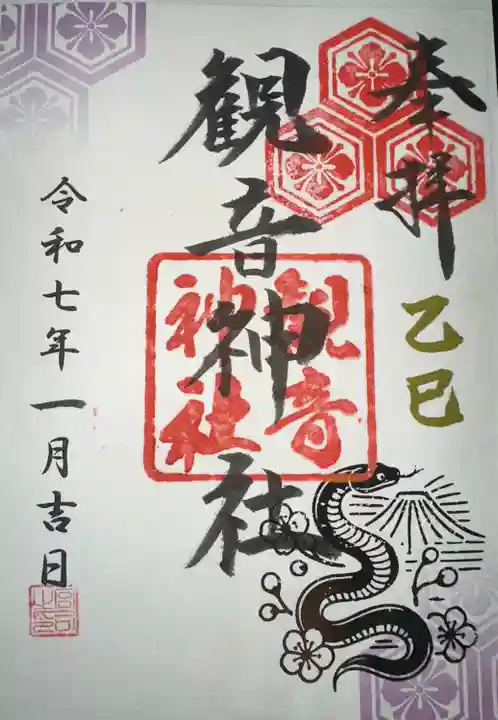 奉拝
乙巳
観音神社
観音
神社
令和七年一月吉日